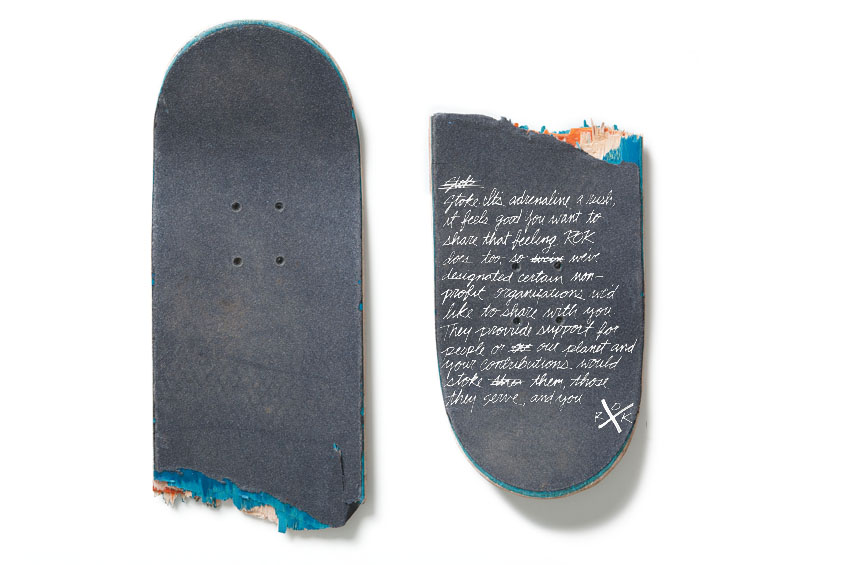 Stoke
Stoke. It's adrenaline, a rush,
it feels good you want to
share that feeling. ROK
does too, so we've
designated certain non-
profit organizations we'd
like to share with you
They provide support for
people or our planet and
your contributions would
stoke them, those
they serve, and you
R O K